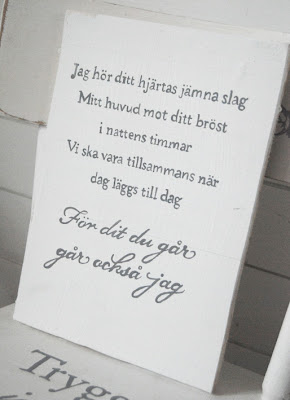 Jag hör ditt hjärtas jämna slag
Mitt huvud mot ditt bröst
i nattens timmar
Vi ska vara tillsammans när
dag läggs till dag
För dit du går
går också jag